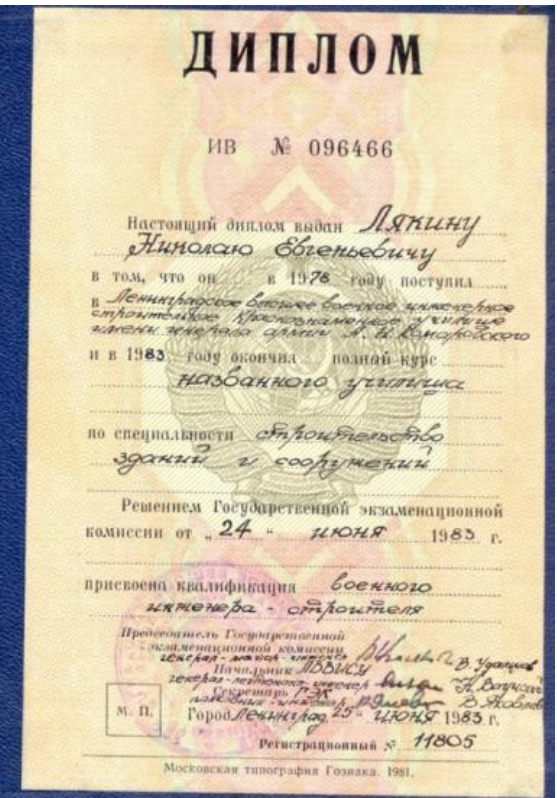 ДИПЛОМ
ИВ № 096466
Настоящий диплом выдан Лякину
Николаю Евгеньевичу
в том, что он в 1978 году поступил
в Ленинградское высшее военное инженерное
строительное Краснознаменное училище
имени генерала армии А. Н. Комаровского
и в 1983 году окончил полный курс
названного училища
по специальности строительство
зданий и сооружений
Решением Государственной экзаменационной
комиссии от „24“ июня 1983 г.
присвоена квалификация военного
инженера - строителя
Председатель Государственной
экзаменационной комиссии
генерал-майор-инженер В.
Начальник ЛВВИСУ
генерал-лейтенант-инженер
Секретарь ГЭК
полковник-инженер В. Яковлев
М. П.
Город Ленинград, 25 “ июня 1983 г.
Регистрационный № 11805
Московская типография Гознака. 1981.